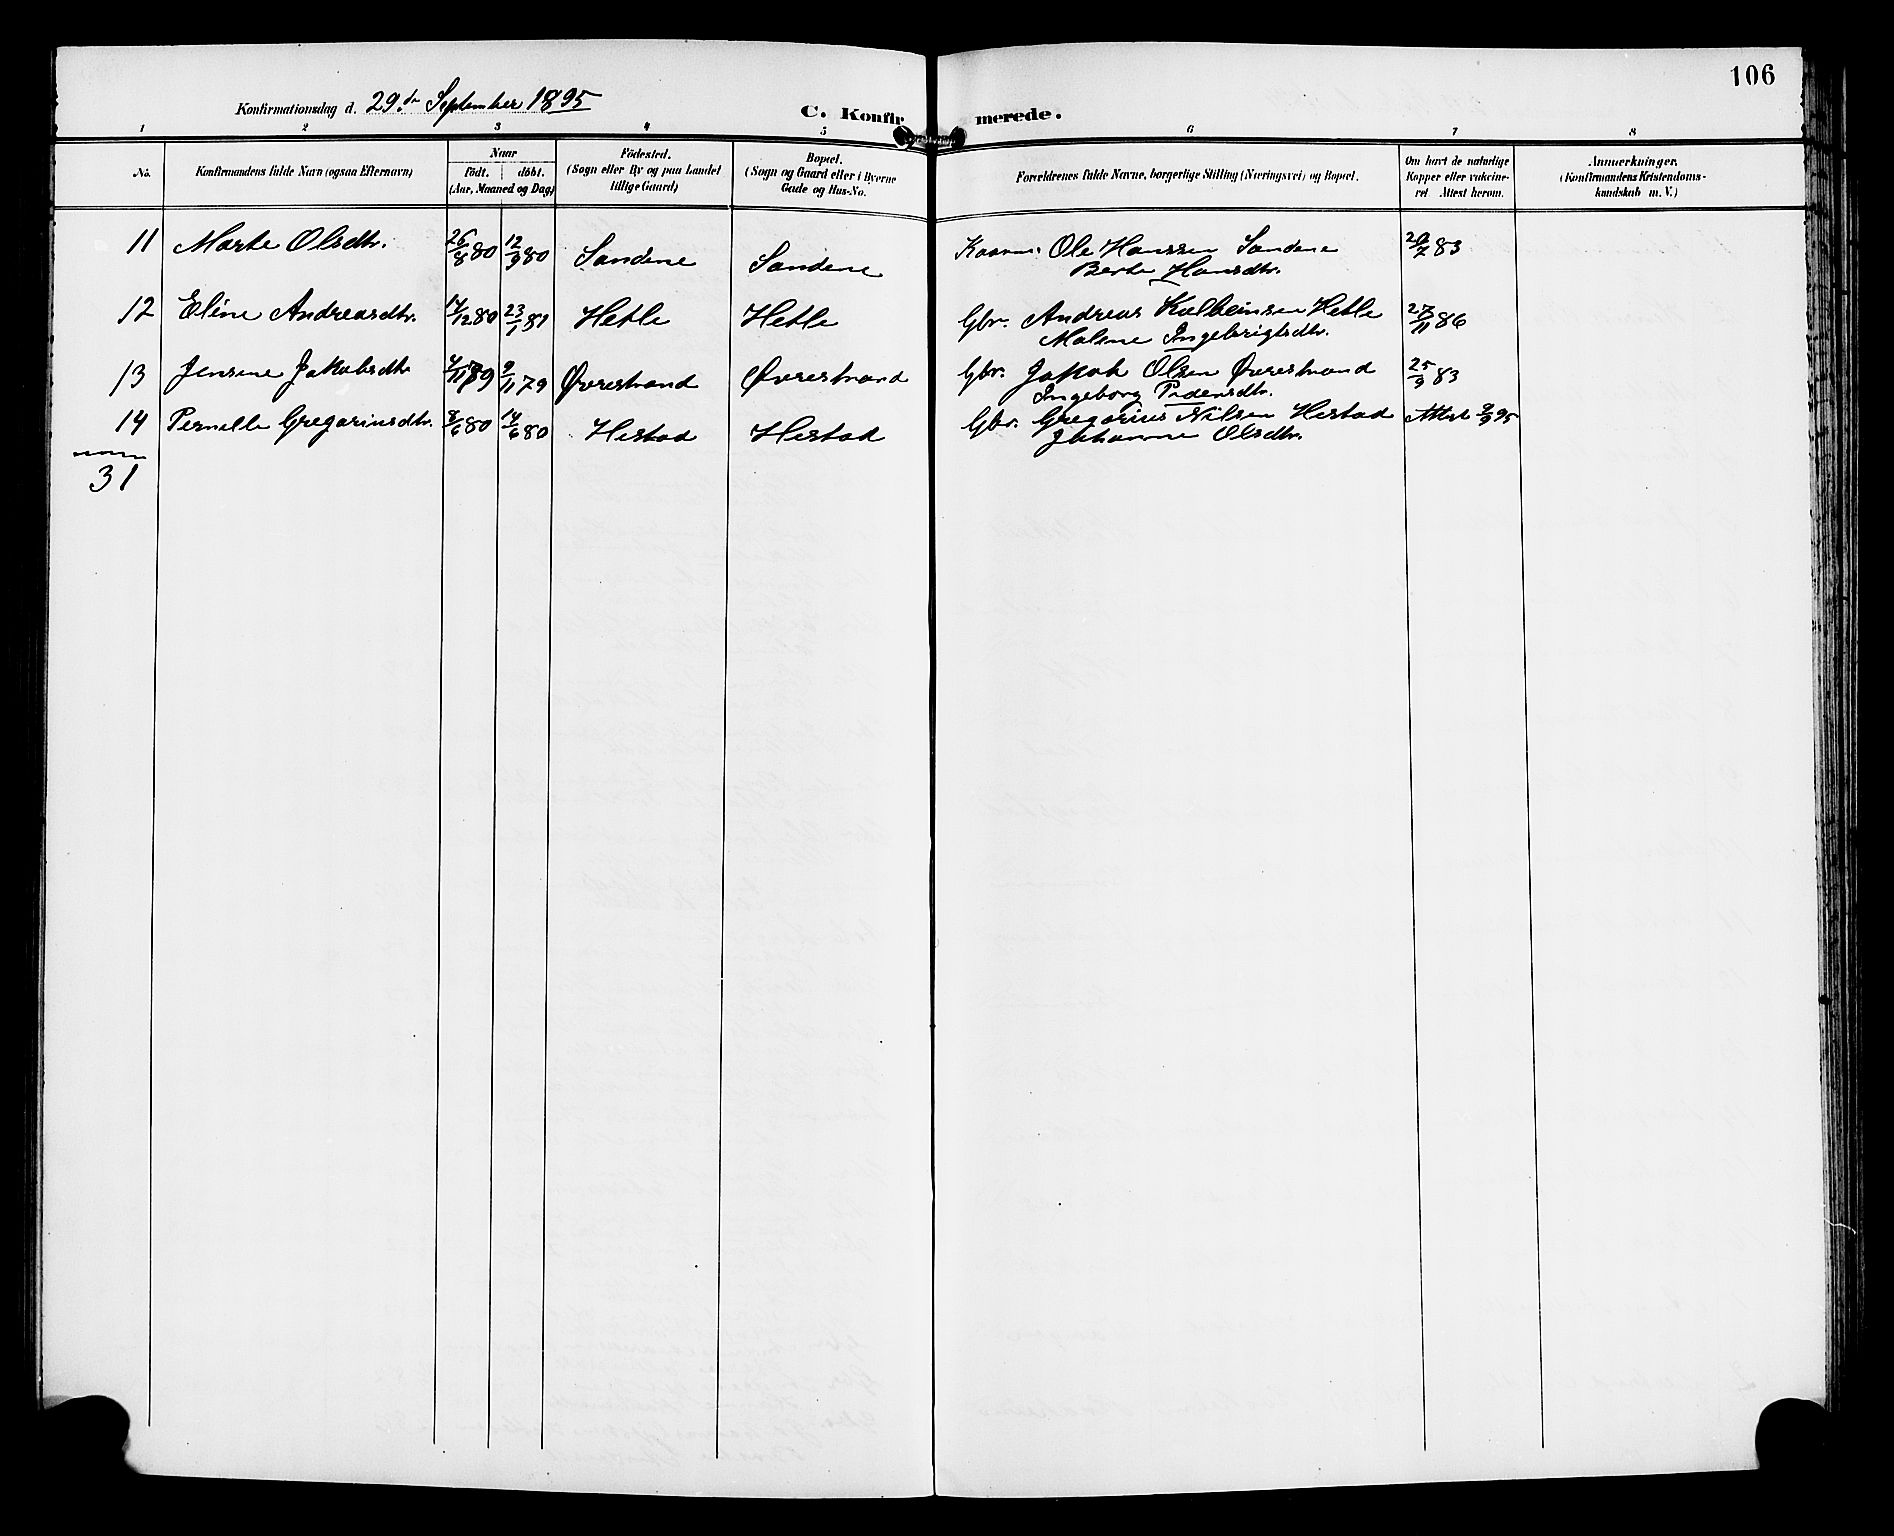 106
Konfirmationsdag d. 29.de September 1895
C. Konfirmerede.
1 2 3 4 5 6 7 8
No.
Konfirmandens fulde Navn (ogsaa Efternavn)
Naar
födt. döbt.
(Aar, Maaned og Dag)
Födested.
(Sogn eller By og paa Landet
tillige Gaard)
Bopæl.
(Sogn og Gaard eller i Byerne
Gade og Hus-No.
Forældrenes fulde Navne, borgerlige Stilling (Næringsvei) og Bopæl.
Om havt de naturlige
Kopper eller vakcine-
ret. Attest herom.
Anmærkninger.
(Konfirmandens Kristendoms-
kundskab m. V.)
11 Marte Olsdtr. 26/8 80 12/9 80 Sandene Sandene Ole Hanssen Sandene 20/7 83
Berte Hansdtr.
12 Eline Andreasdtr. 17/12 80 23/1 81 Hetle Hetle Gbr. Andreas Kolbeinsen Hetle 27/11 86
Malene Ingebrigtsdtr.
13 Jensine Jakobsdtr 4/11 79 9/11 79 Øvrestrand Øvrestrand Gbr. Jakob Olsen Øvrestrand 25/9 83
Ingeborg Pedersdtr.
14 Pernille Gregoriusdtr. 8/6 80 14/6 80 Hestad Hestad Gbr. Gregorius Nilsen Hestad Attest 9/9 95
Johanne Olsdtr.
31